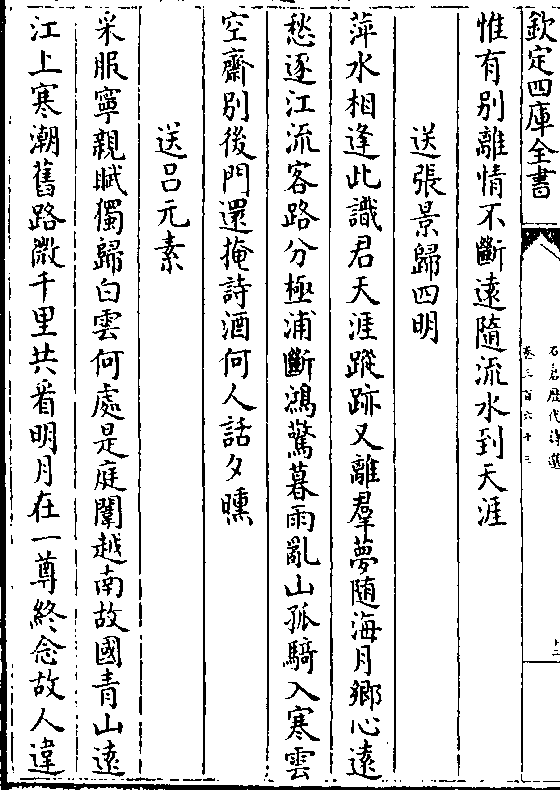 欽定四庫全書
石倉歴代詩選
卷三百六十三
惟有别離情不斷遠隨流水到天涯
送張景歸四明
萍水相逢此識君天涯蹤跡又離羣夢随海月鄉心遠
愁逐江流客路分極浦斷鴻驚暮雨亂山孤騎入寒雲
空齋别後門還掩詩酒何人話夕曛
送吕元素
采服寧親賦獨歸白雲何處是庭闈越南故國青山遠
江上寒潮舊路微千里共看明月在一尊終念故人違